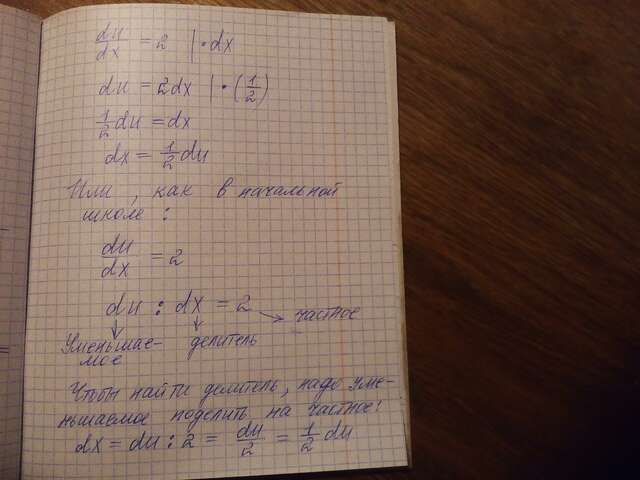 du/dx = 2 | · dx
du = 2dx | · (1/2)
1/2 du = dx
dx = 1/2 du
Или, как в начальной
школе:
du/dx = 2
du : dx = 2 → частное
Уменьшае- делитель
мое
Чтобы найти делитель, надо уме-
ньшаемое поделить на частное:
dx = du : 2 = du/2 = 1/2 du